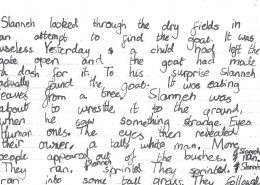 Slanneh looked through the dry fields in
an attempt to find the goat. It was
useless. Yesterday, a child had left the
gate open and the goat had made
a dash for it. To his surprise Slanneh
actually found the goat. It was eating
leaves from a tree. Slanneh was
about to wrestle it to the ground,
when he saw something strange. Eyes
Human ones. The eyes then revealed
their owner, a tally white man. More
people appeared out of the bushes. Slanneh ran.
They ran. Slanneh sprinted. They sprinted. Slanneh
ran into some tall grass. They followed